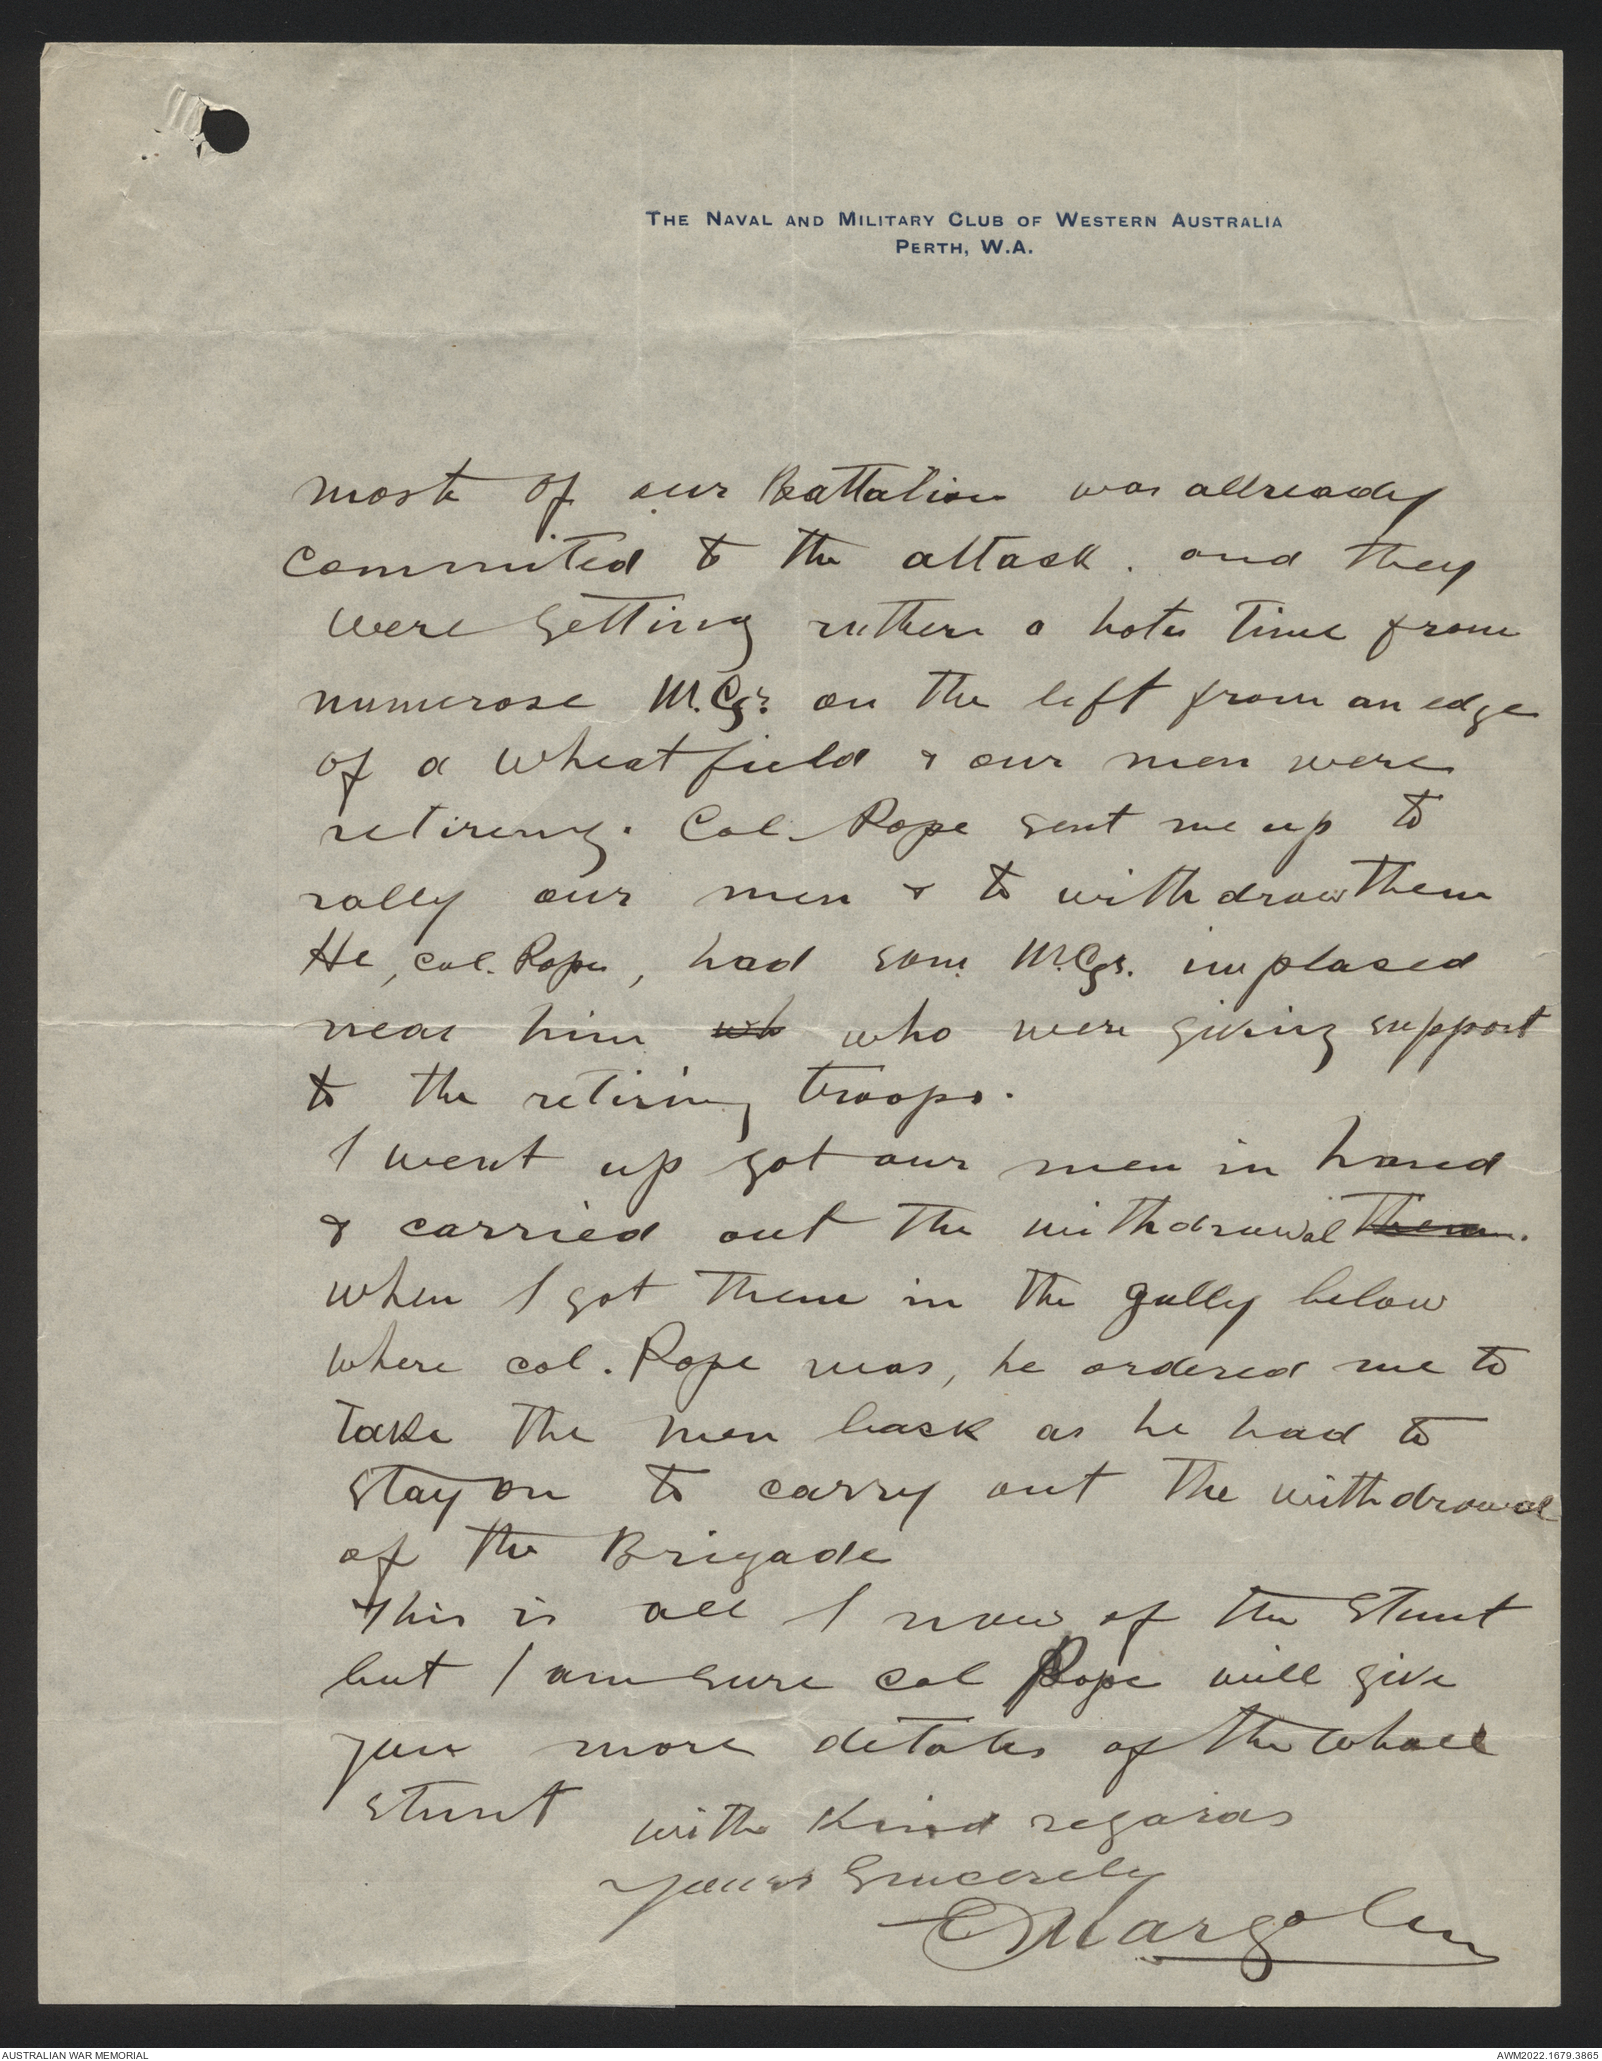 THE NAVAL AND MILITARY CLUB OF WESTERN AUSTRALIA
PERTH, W.A.
most of our Battalion was allready
commited to the attack. and they
were getting ruther a hote time from
numerose M.Gs. on the left from an edge
of a wheatfield & our men were
retireing. Col. Pope sent me up to
rally our men & to withdraw them
He, Col. Pope, had some M.Gs. implased
near him wh who were giving support
to the retiring troops.
I went up got our men in hand
& carried out the withdrawal them.
when I got them in the gully below
where col. Pope was, he ordered me to
take the men back as he had to
stay on to carry out the withdrawal
of the Brigade
This is all I now of the stunt
but I am sure col Pope will give
you more detales of the whole
stunt
with kind regards
yours Sincerely
E Margolin
AUSTRALIAN WAR MEMORIAL
AWM2022.1679.3865